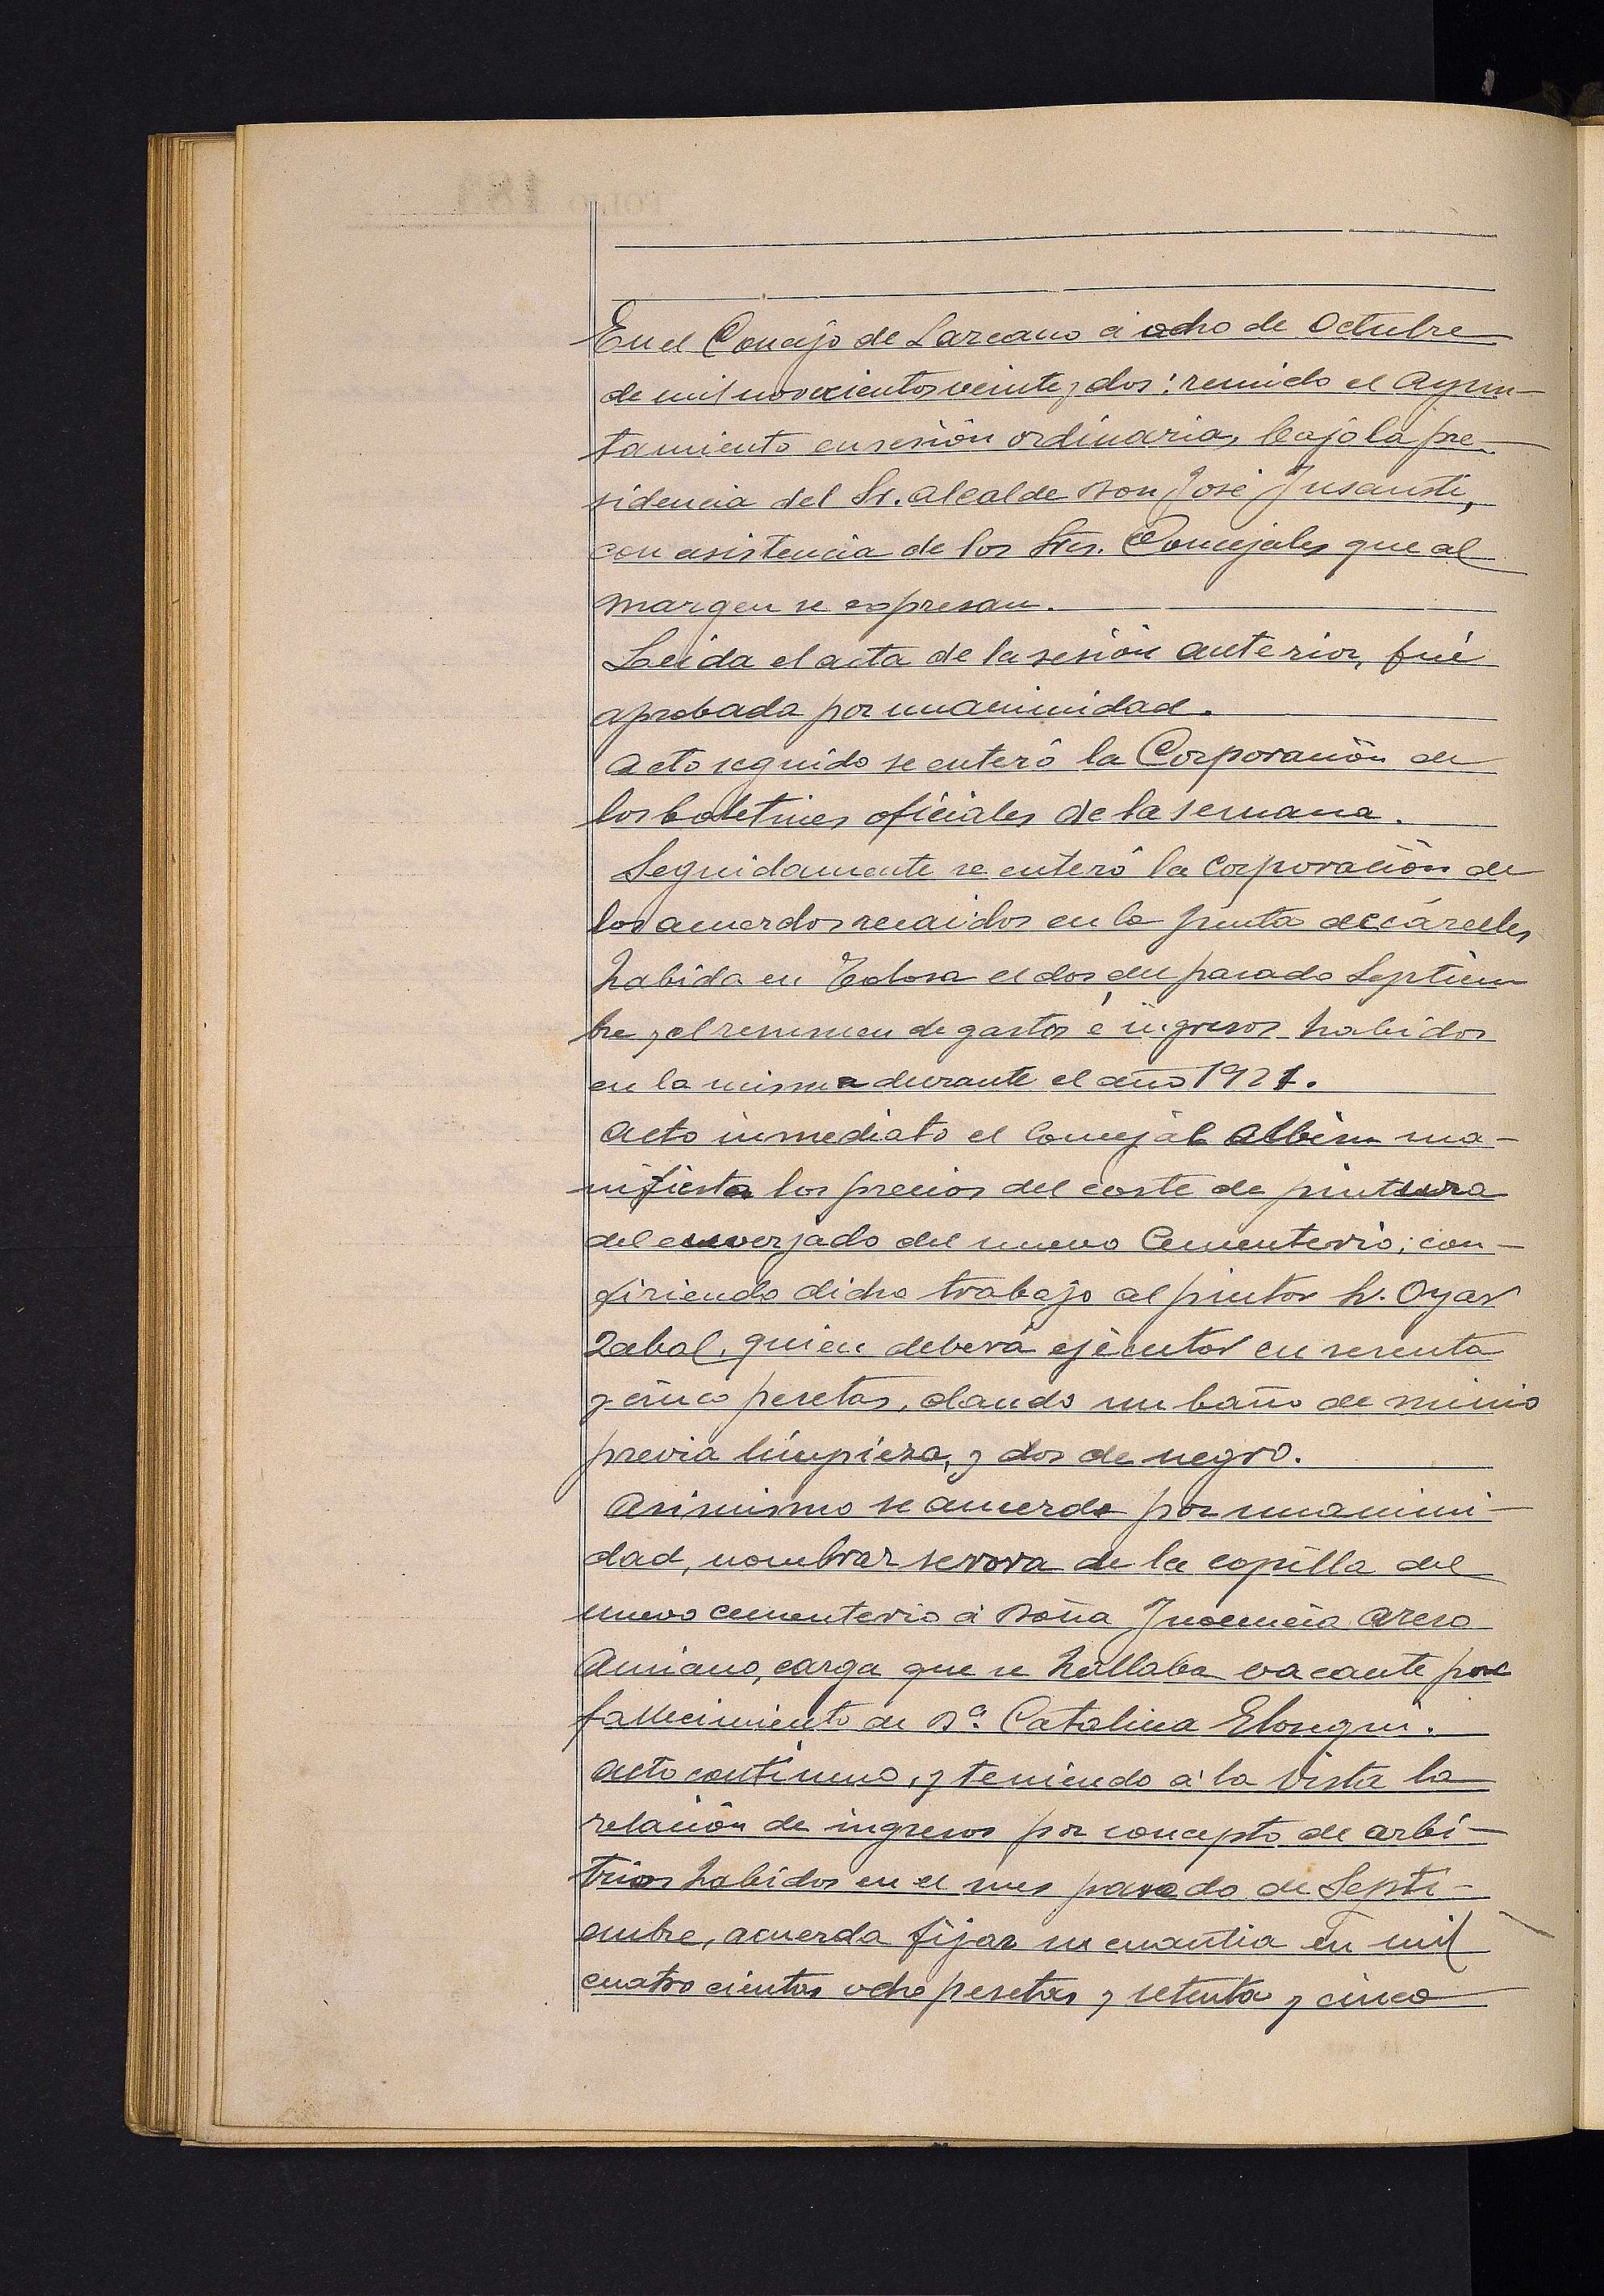 En el Concejo de Lazcano á ocho de Octubre
de mil novecientos veinte y dos: reunido el Ayun-
tamiento en sesión ordinaria, bajo la pre-
sidencia del Sr. Alcalde Don José Insausti,
con asistencia de los Sres. Concejales que al
margen se expresan.
Leida el acta de la sesión anterior, fué
aprobada por unanimidad.
Acto seguido se enteró la Corporación de
los boletines oficiales de la semana.
Seguidamente se enteró la Corporación de
los acuerdos recaidos en la junta de cárceles
habida en Tolosa el dos del pasado Septiem
bre y el resumen de gastos é ingresos habidos
en la misma durante el año 1921.
Acto inmediato el Concejal Albisu ma-
nifiesta los precios del coste de pintura
del enverjado del nuevo Cementerio; con-
firiendo dicho trabajo al pintor Sr. Oyar
zabal, quien deberá ejecutar en sesenta
y cinco pesetas, dando un baño de minio
previa limpieza, y dos de negro.
Asimismo se acuerda por unanimi-
dad, nombrar serora de la capilla del
nuevo cementerio á Doña Inocencia Areso
Amiano, carga que se hallaba vacante por
fallecimiento de Dª. Catalina Elosegui.
Acto continuo, y teniendo á la vista la
relación de ingresos por concepto de arbi-
trios habidos en el mes pasado de Septi-
embre, acuerda fijar su cuantia en mil
cuatrocientas ocho pesetas y setenta y cinco